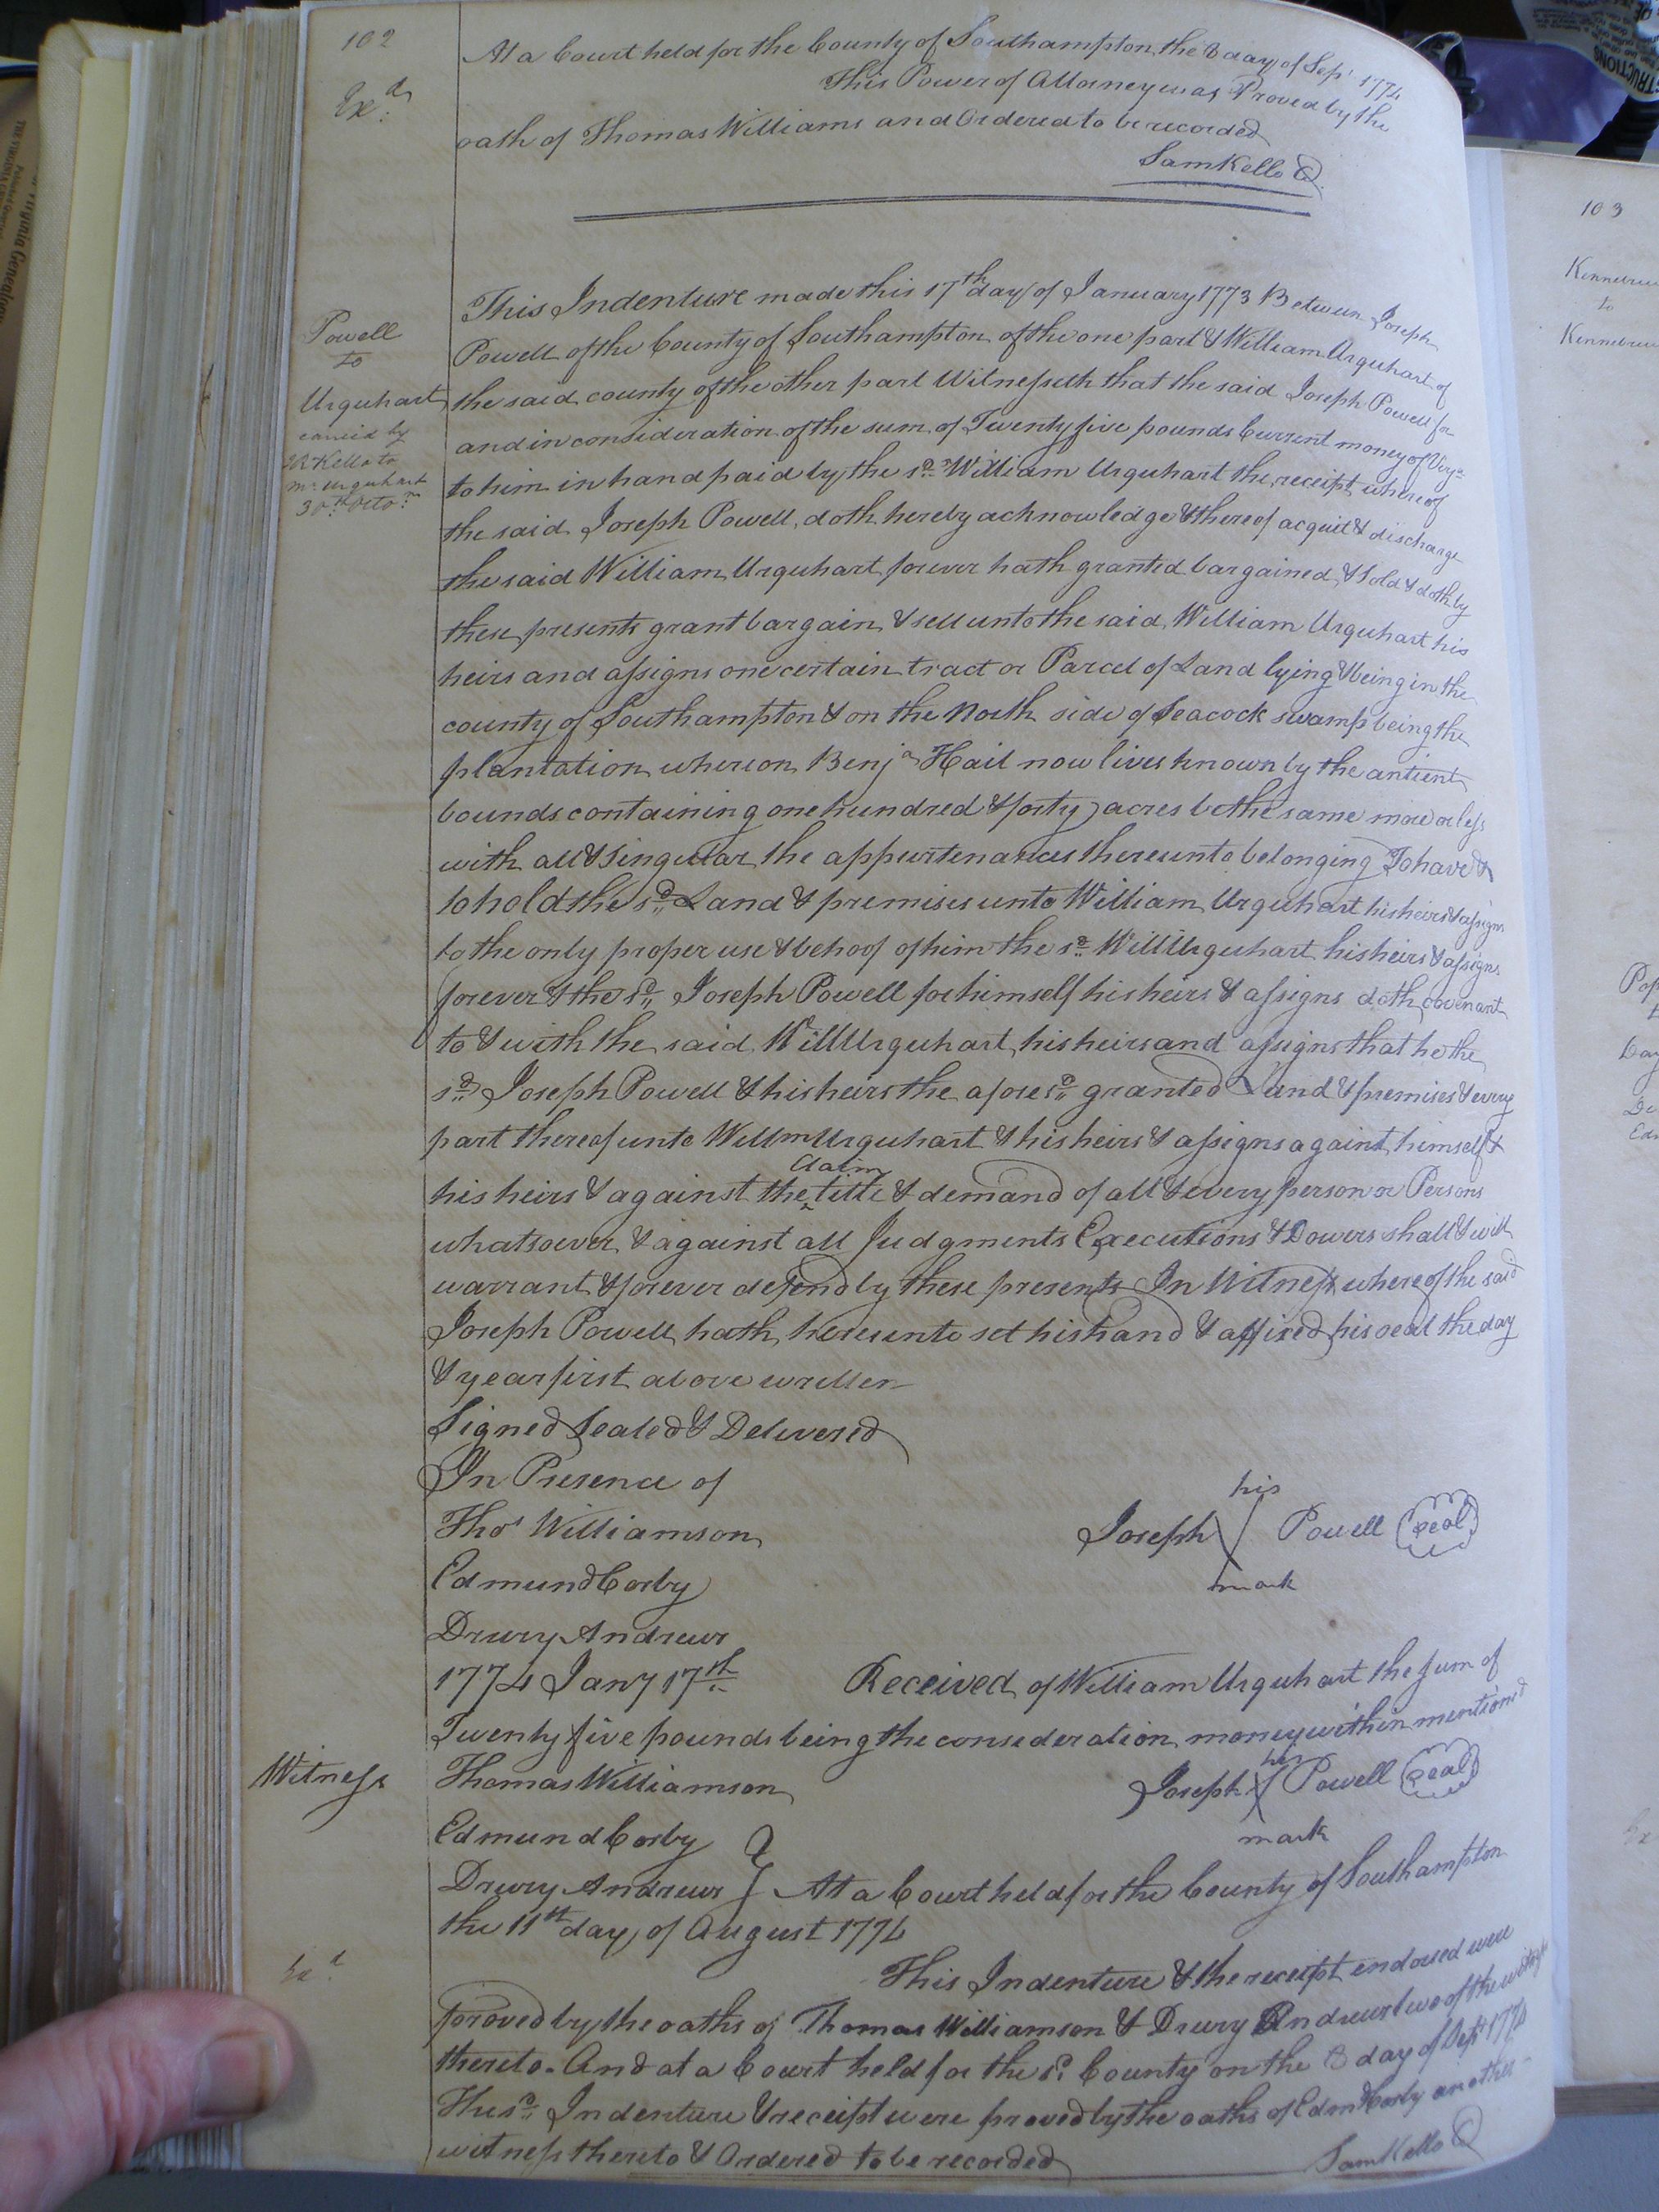 102
At a Court held for the County of Southampton the 8 day of Sep.r 1774
Ex.d
This Power of Attorney was Proved by the
oath of Thomas Williams and Ordered to be recorded
Sam Kello C.
Powell
to
Urquhart
This Indenture made this 17th day of January 1773 Between Joseph
Powell of the County of Southampton of the one part & William Urquhart of
the said county of the other part Witnesseth that the said Joseph Powell for
and in consideration of the sum of Twenty five pounds Current money of Virg.a
to him in hand paid by the s.d William Urquhart the receipt whereof
Mr. Urquhart
the said Joseph Powell, doth hereby acknowledge & thereof acquit & discharge
the said William Urquhart forever hath granted bargained & sold & doth by
these presents grant bargain & sell unto the said William Urquhart his
heirs and assigns one certain tract or Parcel of Land lying & being in the
county of Southampton & on the North side of Seacock swamp being the
plantation whereon Benj.a Hail now lives known by the antient
bounds containing one hundred & forty acres be the same more or less
with all & Singular the appurtenances thereunto belonging To have &
to hold the s.d Land & premises unto William Urquhart his heirs & assigns
to the only proper use & behoof of him the s.d Will Urquhart his heirs & assigns
forever & the s.d Joseph Powell for himself his heirs & assigns doth covenant
to & with the said Will Urquhart, his heirs and assigns that he the
s.d Joseph Powell & his heirs the afores.d granted Land & premises & every
part thereof unto Willm Urquhart & his heirs & assigns against himself &
Claim
his heirs & against the ^ title & demand of all & every person or Persons
whatsoever & against all Judgments Executions & Dowers shall & will
warrant & forever defend by these presents In Witness whereof the said
Joseph Powell hath hereunto set his hand & affixed his seal the day
& year first above written
Signed Sealed & Delivered
In Presence of
Tho.s Williamson
Edmund Corby
Drury Andrews
his
Joseph X Powell (seal)
mark
1774 Jany 17th Received of William Urquhart the sum of
Twenty five pounds being the consideration money within mentioned
Witness
Thomas Williamson
Edmund Corby
Drury Andrews
his
Joseph X Powell (seal)
mark
At a Court held for the County of Southampton
the 11th day of August 1774
Ex.d
This Indenture & the receipt endorsed were
proved by the oaths of Thomas Williamson & Drury Andrews two of the witness
thereto. And at a Court held for the s.d County on the 8 day of Sept 1774
The s.d Indenture & receipt were proved by the oaths of Edm.d Corby another
witness thereto & Ordered to be recorded
Sam Kello C
103
to